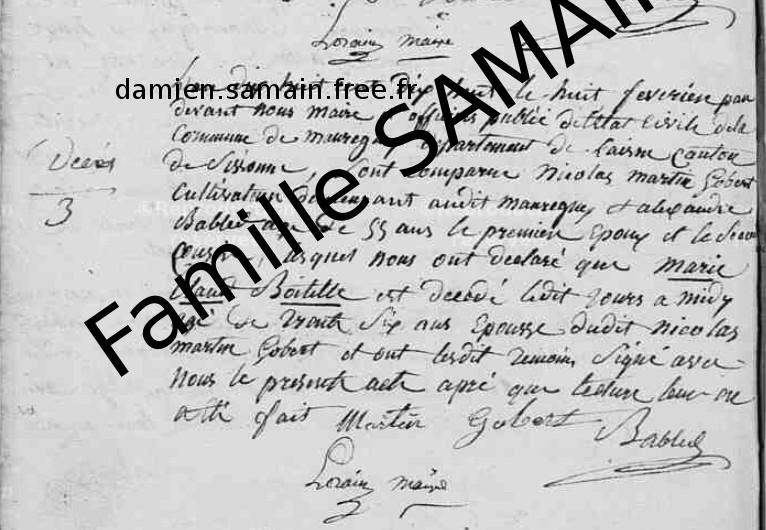 Lorain maire
L'an dix huit cent dix huit le huit fevrier par
devant nous maire officier public de l'état civile de la
Commune de mauregny departement de L'aisne canton
de Sissonne, sont comparue Nicolas martin Gobert
Cultivateur demeurant audit mauregny et alexandre
Bablet de 55 ans le premier Epoux et le Secon
Cousin, lesquels nous ont declaré que Marie
Boitelle est decedé ledit Jours a midy
agé de trante Six ans Epousse dudit nicolas
martin Gobert et ont lesdit temoins Signé avec
Nous le presente acte apré que lecture leur on
a été fait Martin Gobert Bablet
Lorain maire
Decés
3
damien.samain.free.fr
Famille SAMAIN